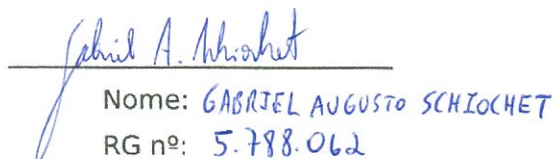 Gabriel A. Schiochet
Nome: GABRIEL AUGUSTO SCHIOCHET
RG nº: 5.788.062